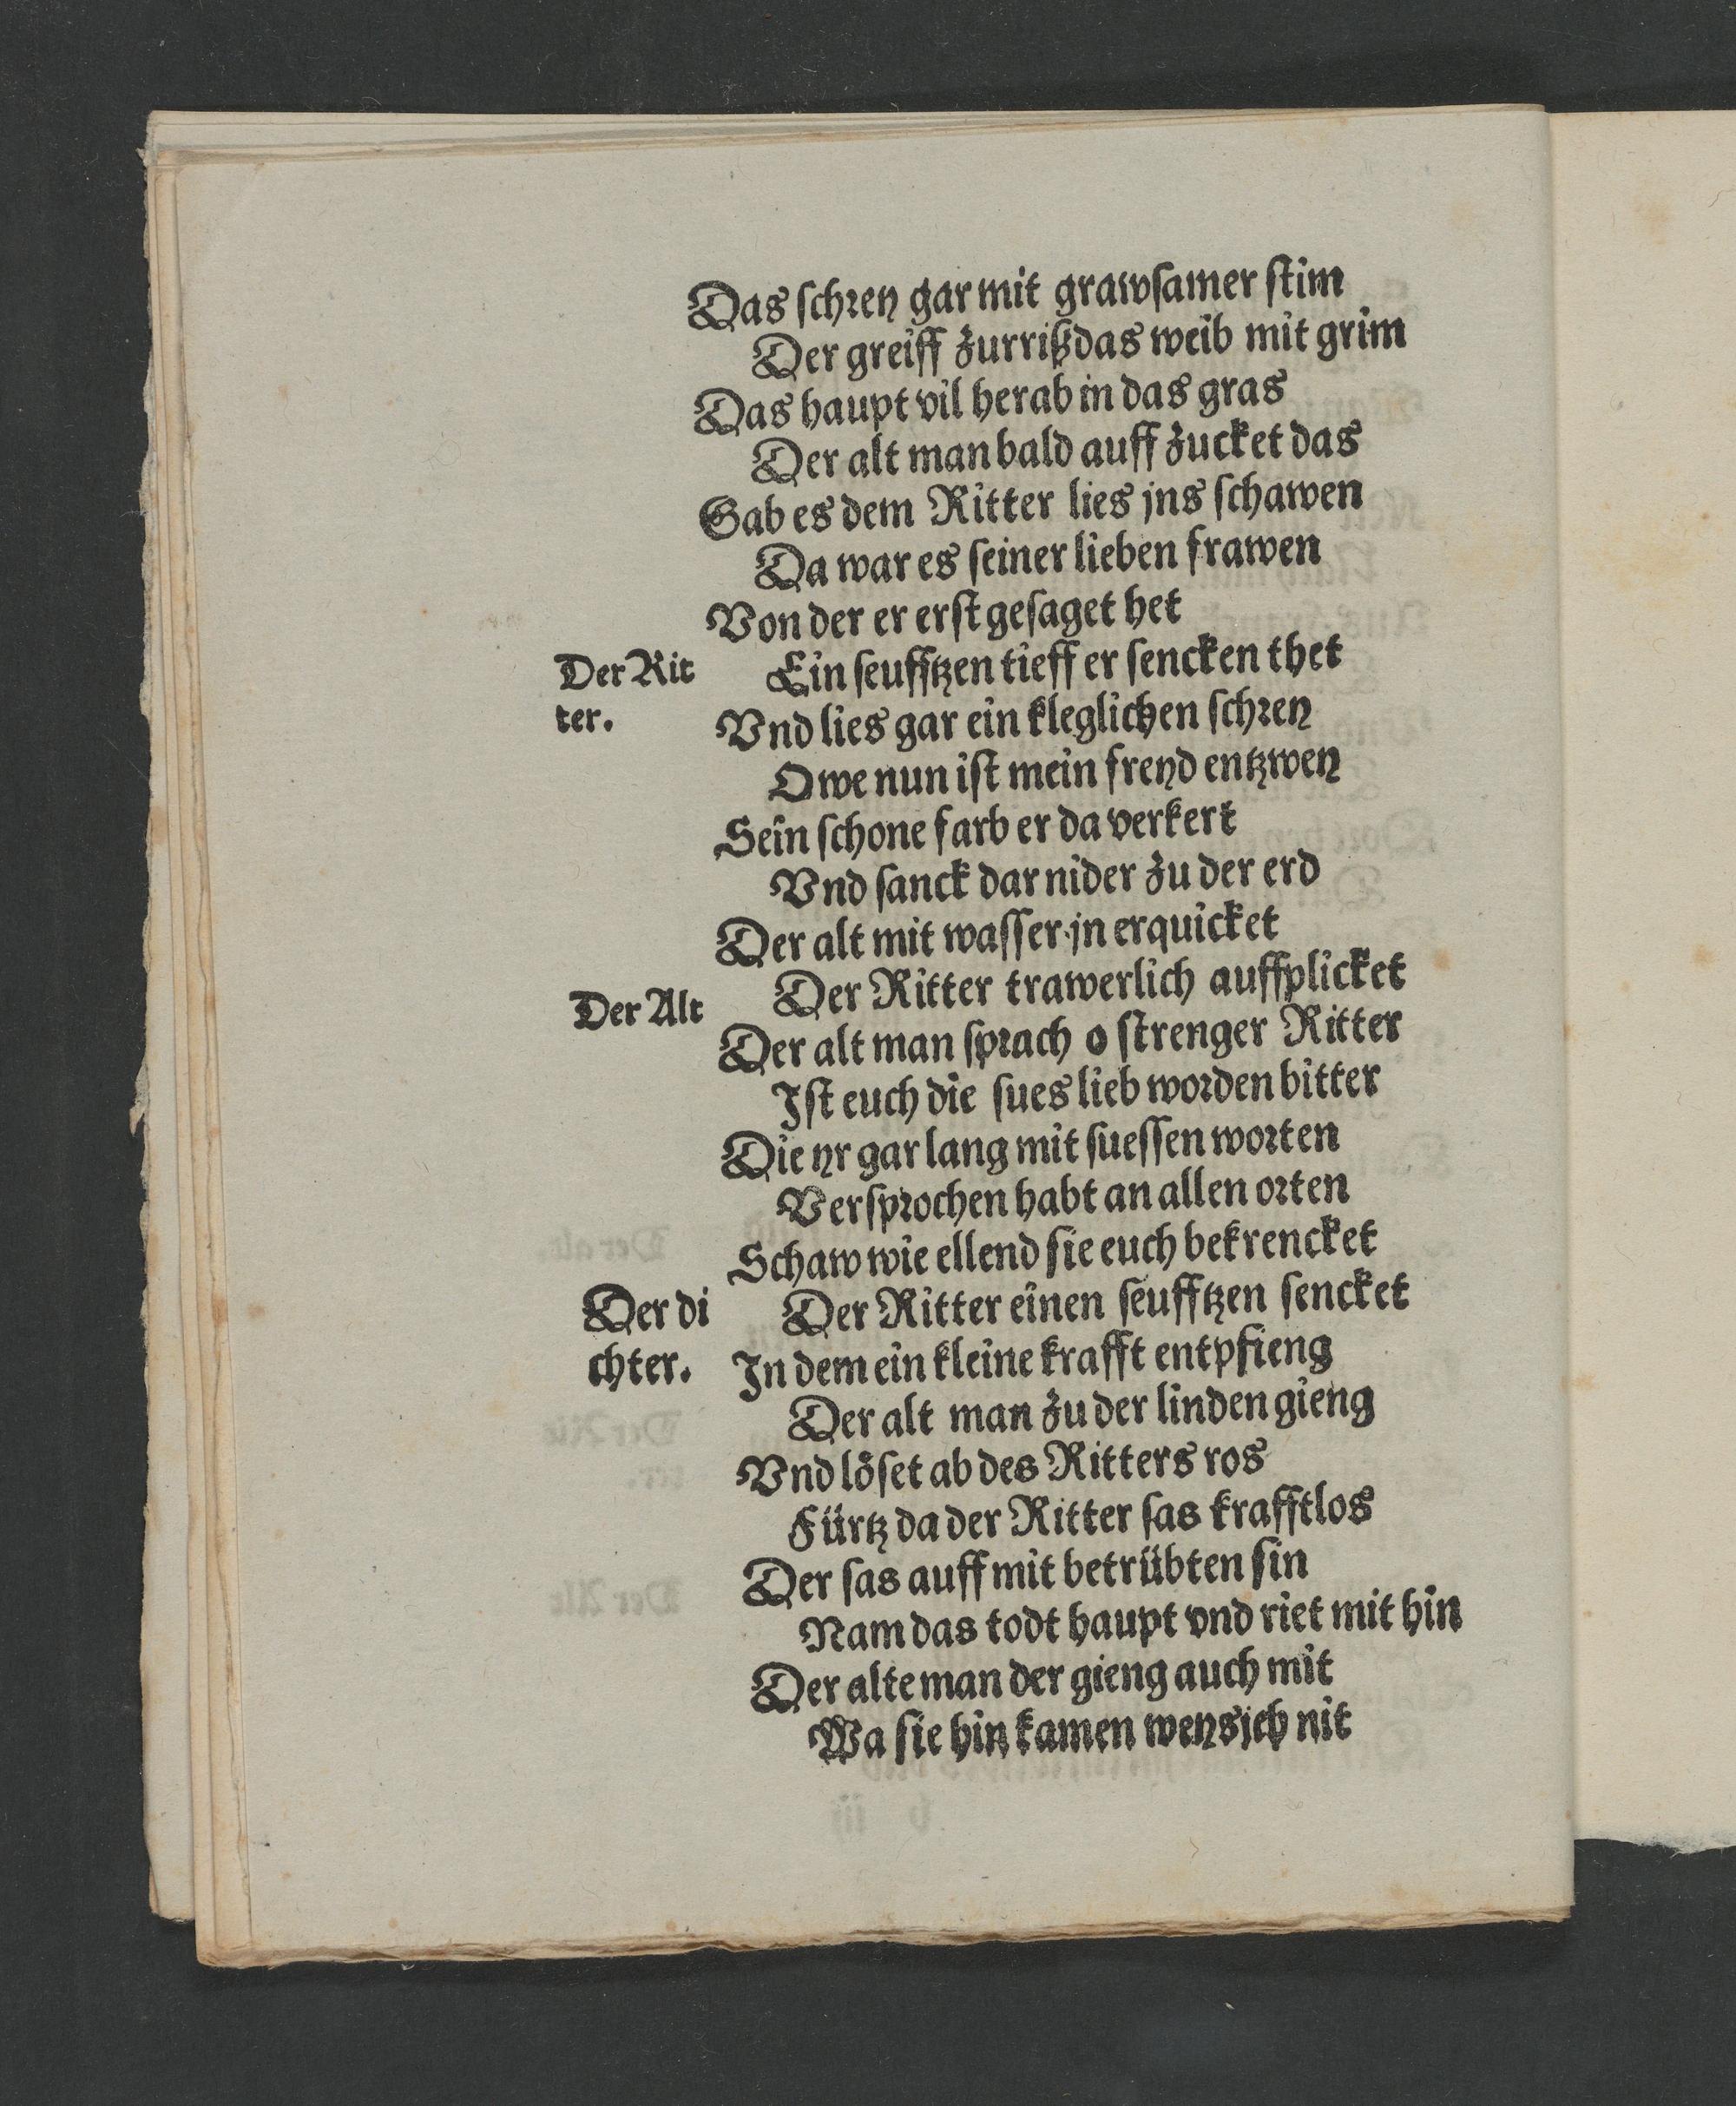 Das ſchrey gar mit grawſamer ſtim
Der greiff zurriß das weib mit grim
Das haupt vil herab in das gras
Der alt man bald auff zucket das
Gab es dem Ritter lies jns ſchawen
Da war es ſeiner lieben frawen
Von der er erſt geſaget het
Der Rit
ter.
Ein ſeufftzen tieff er ſencken thet
Vnd lies gar ein kleglichen ſchrey
O we nun iſt mein freyd entzwey
Sein ſchone farb er da verkert
Vnd ſanck dar nider zu der erd
Der alt mit waſſer jn erquicket
Der Ritter trawerlich auffplicket
Der Alt
Der alt man ſprach o ſtrenger Ritter
Iſt euch die ſues lieb worden bitter
Die yr gar lang mit ſueſſen worten
Verſprochen habt an allen orten
Schaw wie ellend ſie euch bekrencket
Der di
chter.
Der Ritter einen ſeufftzen ſencket
In dem ein kleine krafft entpfieng
Der alt man zu der linden gieng
Vnd löſet ab des Ritters ros
Fürtz da der Ritter ſas krafftlos
Der ſas auff mit betrübten ſin
Nam das todt haupt vnd riet mit hin
Der alte man der gieng auch mit
Wa ſie hin kamen weys jch nit